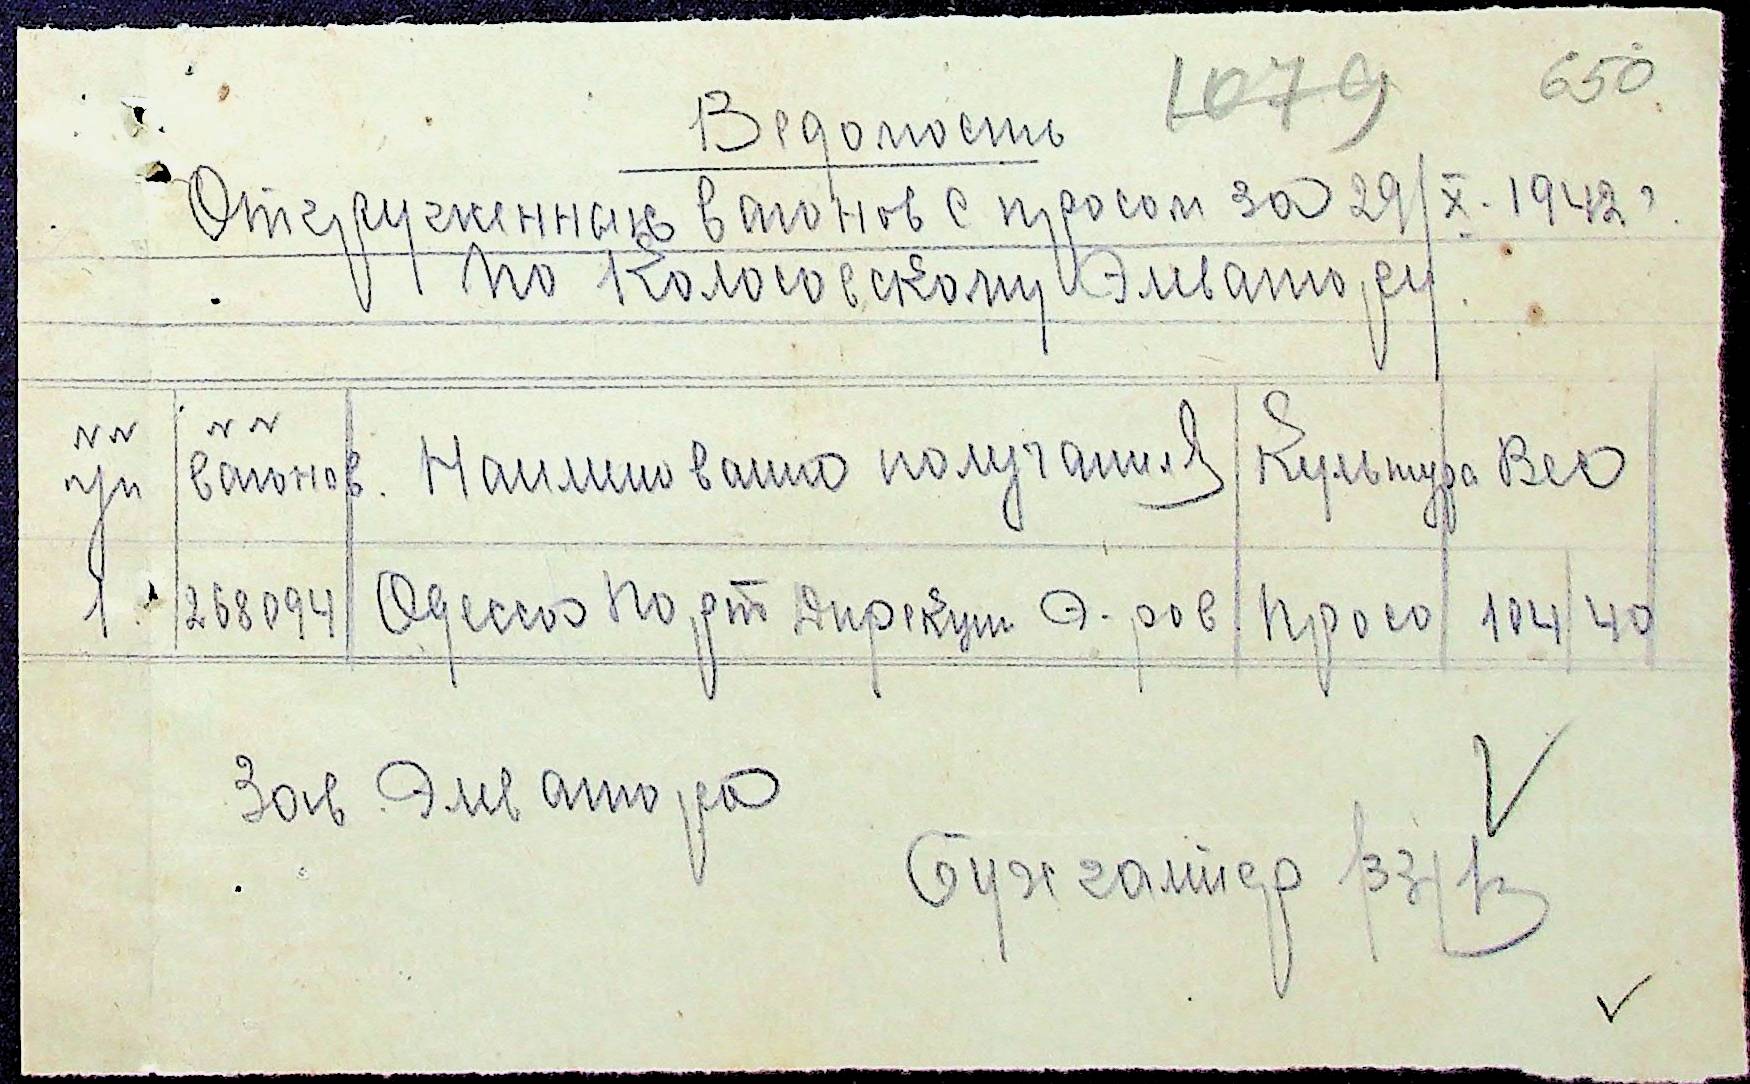 1079 650
Ведомость
Отгруженных вагонов с просом за 29/X. 1942 г.
по Колосовскому Элеватору.
№№ №№
п/п вагонов. Наименование получателя Культура Вес
1. 268094 Одесса Порт Дирекции Э-ров. Просо 104 40
Зав Элеватора
Бухгалтер